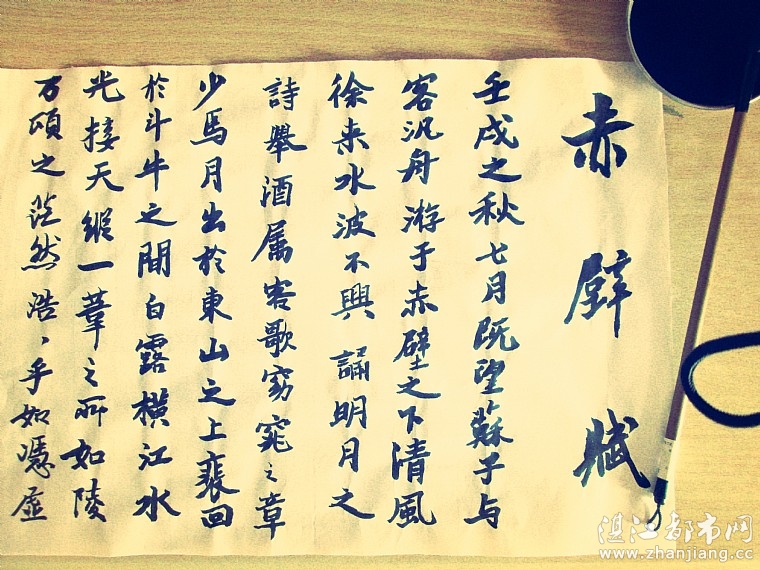 赤壁賦
壬戌之秋七月既望蘇子与
客汎舟游于赤壁之下清風
徐来水波不興誦明月之
詩舉酒属客歌窈窕之章
少焉月出於東山之上裴回
於斗牛之間白露横江水
光接天縱一葦之所如陵
万頃之茫然浩、乎如憑虛
湛江都市网
www.zhanjiang.cc